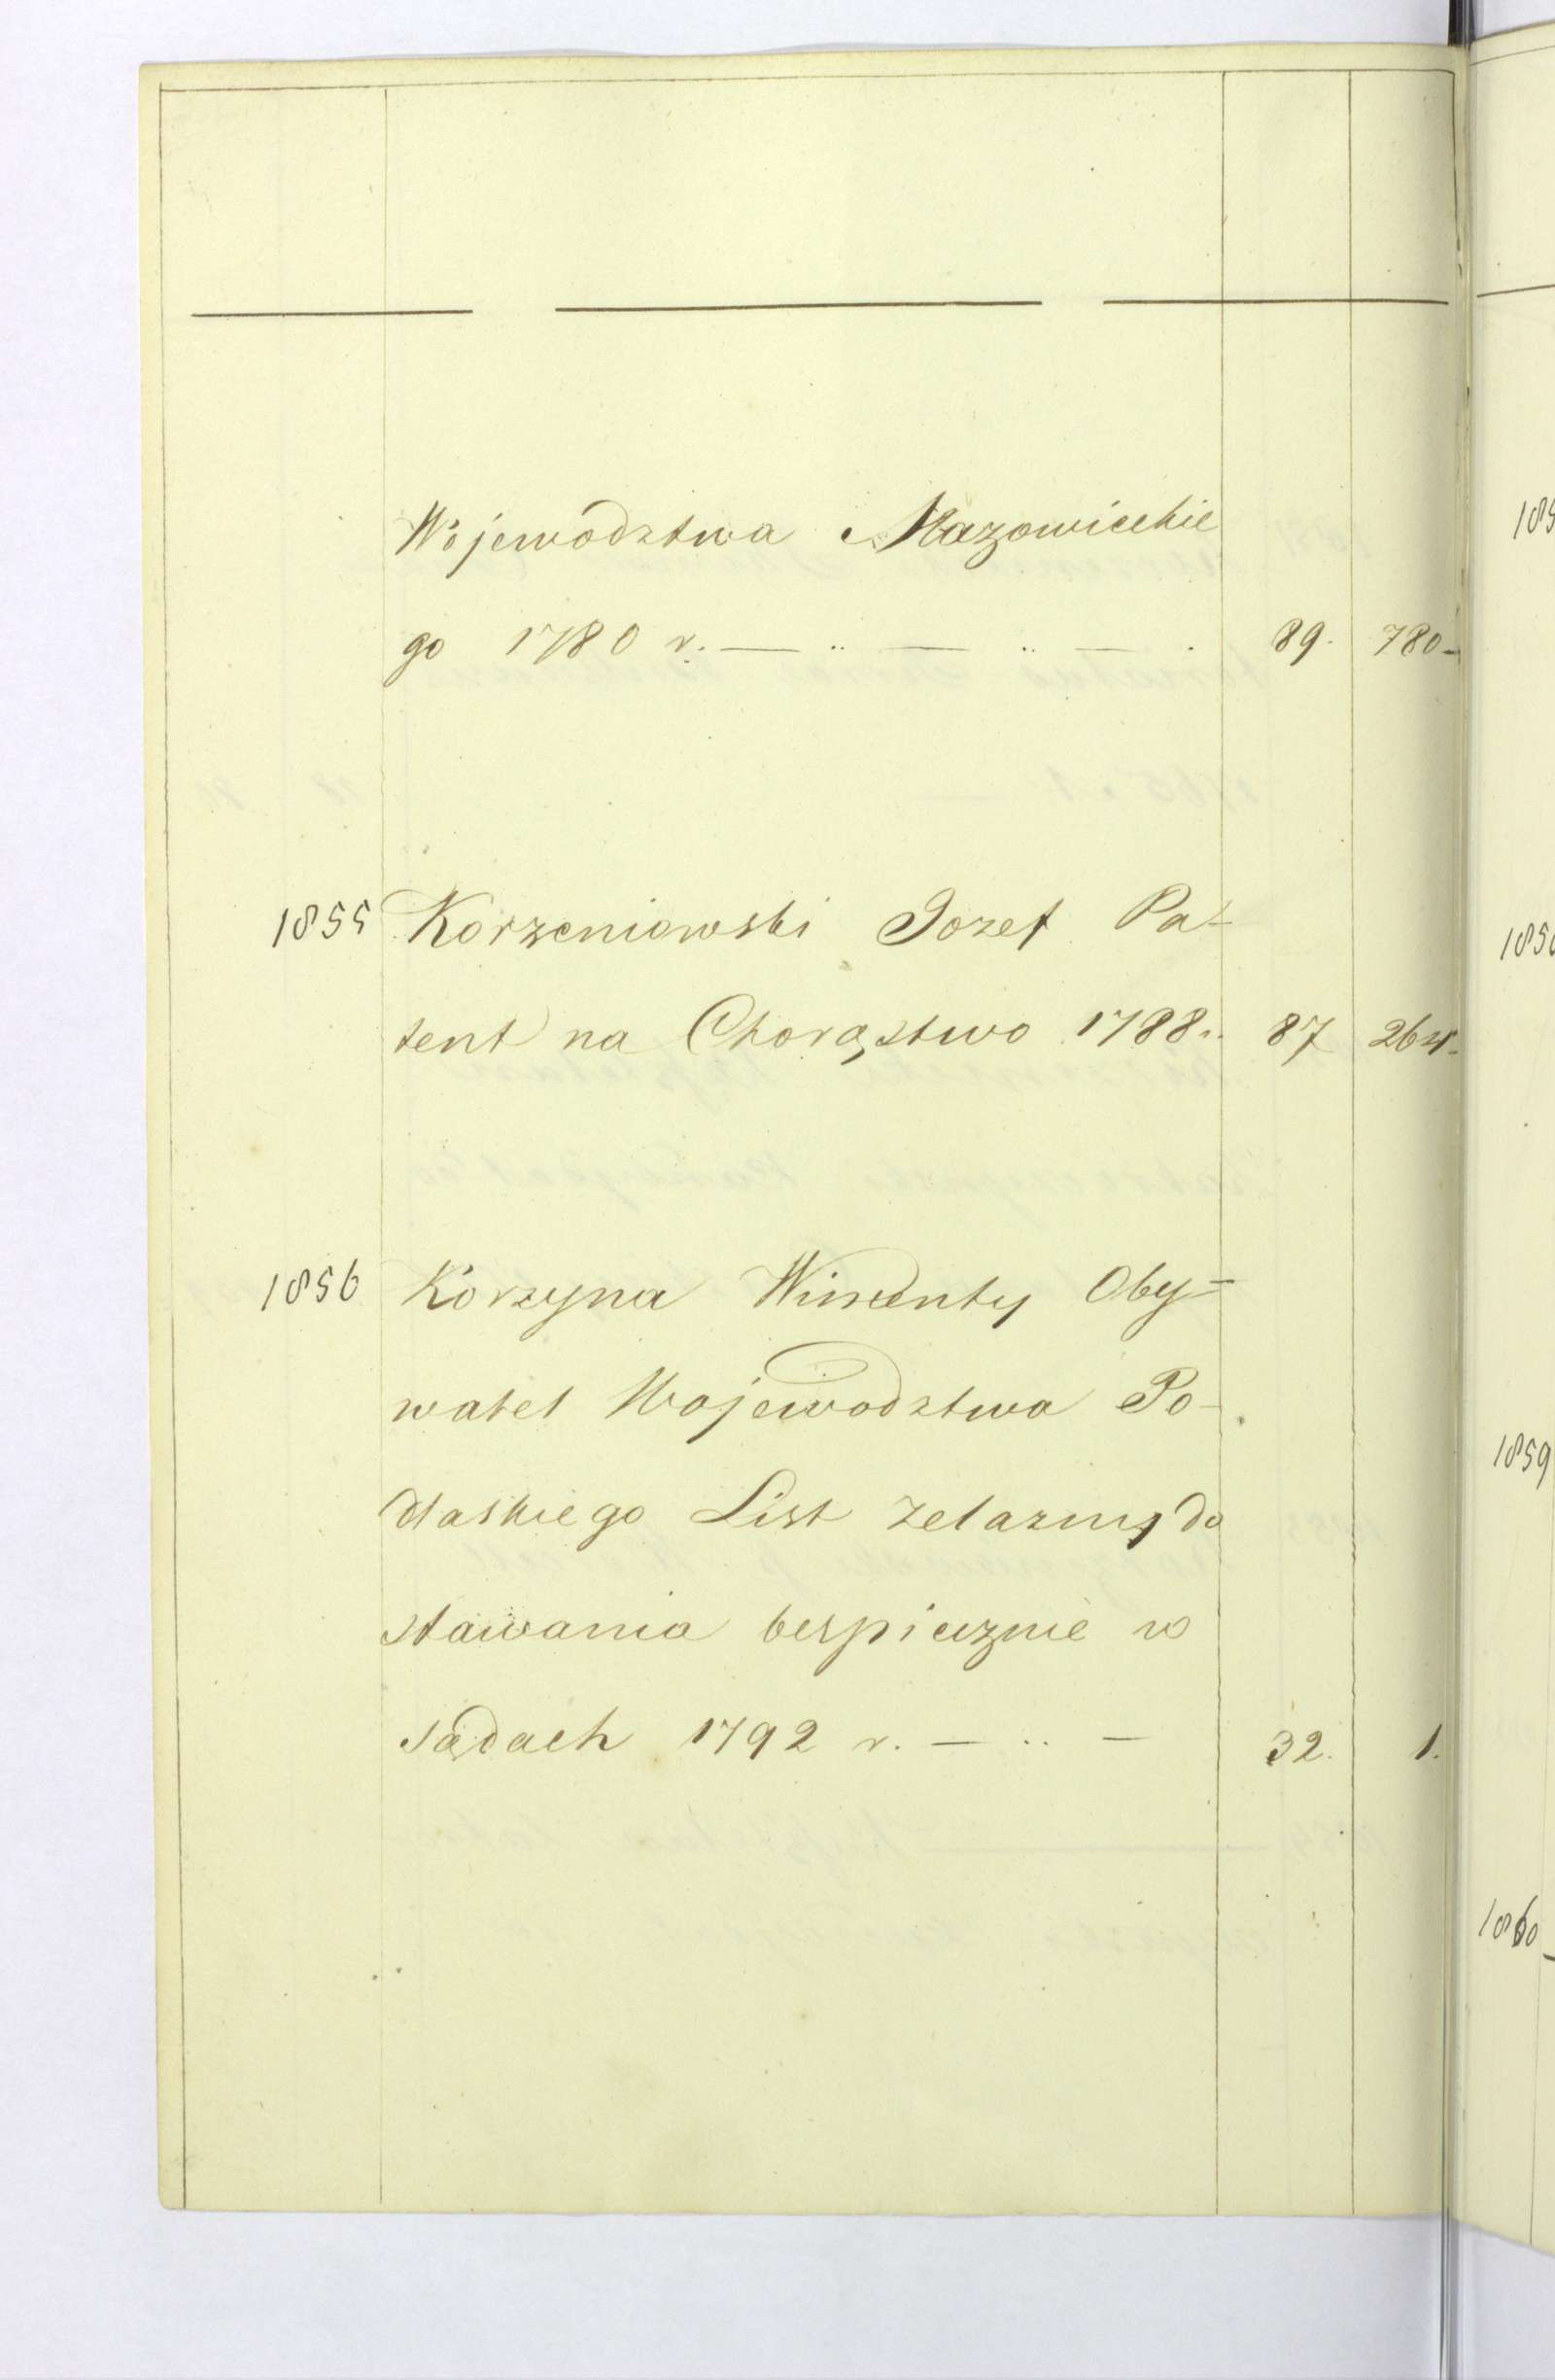 Wojewodztwa Mazowieckie
go 1780 r. — .. — .. — . 89. 780 -
1855 Korzeniowski Jozef Pa-
tent na Chorąstwo 1788 r. 87 264.
1856 Korzyna Wincenty Oby=
watel Wojewodztwa Po-
dlaskiego List zelazny do
stawania bespiecznie w
sądach 1792 r. — .. — 32. 1.
1859
1860